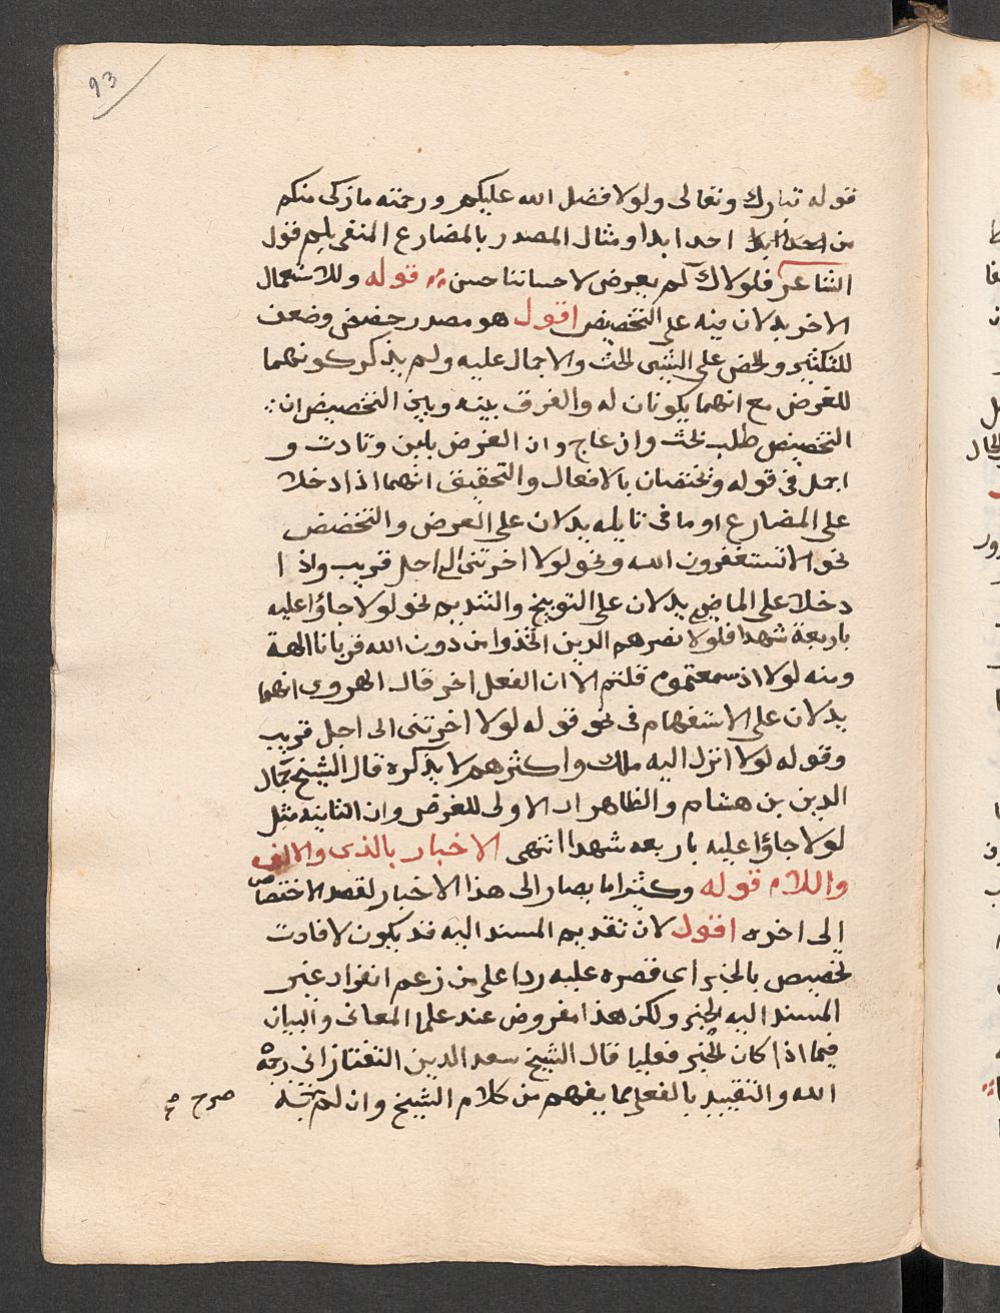 93
قوله تبارك وتعالى ولولا فضل الله عليكم ورحمته ما زكى منكم
من احد ابدا احد ابدا ومثال المصدر بالمضارع المنفى بلم قول
الشاعر فلولاك لم يعرض لاحساننا حسن قوله وللاستعمال
الاخر يدلان فيه على التخصيص اقول هو مصدر حضض وضعف
للتكثير والحض على الشى الحث والاجمال عليه ولم يذكر كونهما
للعرض مع انهما يكونان له والفرق بينه وبين التخصيص ان
التخصيص طلب بحث وازعاج وان العرض بلين وتادت و
اجمل فى قوله ويختصان بالافعال والتحقيق انهما اذا دخلا
على المضارع او ما فى تاويله يدلان على العرض والتخضض
نحو لولا تستغفرون الله ونحو لولا اخرتنى الى اجل قريب واذا
دخلا على الماضى يدلان على التوبيخ والتنديم نحو لولا جاؤا عليه
باربعة شهدا فلولا نصرهم الدين اتخذوا من دون الله قربانا الهة
ومنه لولا اذ سمعتموه قلتم الا ان الفعل اخر قال الهروى انهما
يدلان على الاستفهام فى نحو قوله لولا اخرتنى الى اجل قريب
وقوله لولا انزل اليه ملك واكثرهم لا يذكره قال الشيخ جمال
الدين بن هشام والظاهر ان الاولى للعرض وان الثانية مثل
لولا جاؤا عليه باربعه شهدا انتهى الاخبار بالذى والالف
واللام قوله وكثيرا ما يصار الى هذا الاخبار لقصد الاختصاص
الى اخره اقول لان تقديم المسند اليه قد يكون لافادت
تخصيص بالخبر اى قصره عليه ردا على من زعم انفراد غير
المسند اليه بالخبر ولكن هذا مفروض عند علما المعانى والبيان
فيما اذا كان الخبر فعليا قال الشيخ سعد الدين التفتازانى رحمه
الله والتقييد بالفعلى مما يفهم من كلام الشيخ وان لم
صرح